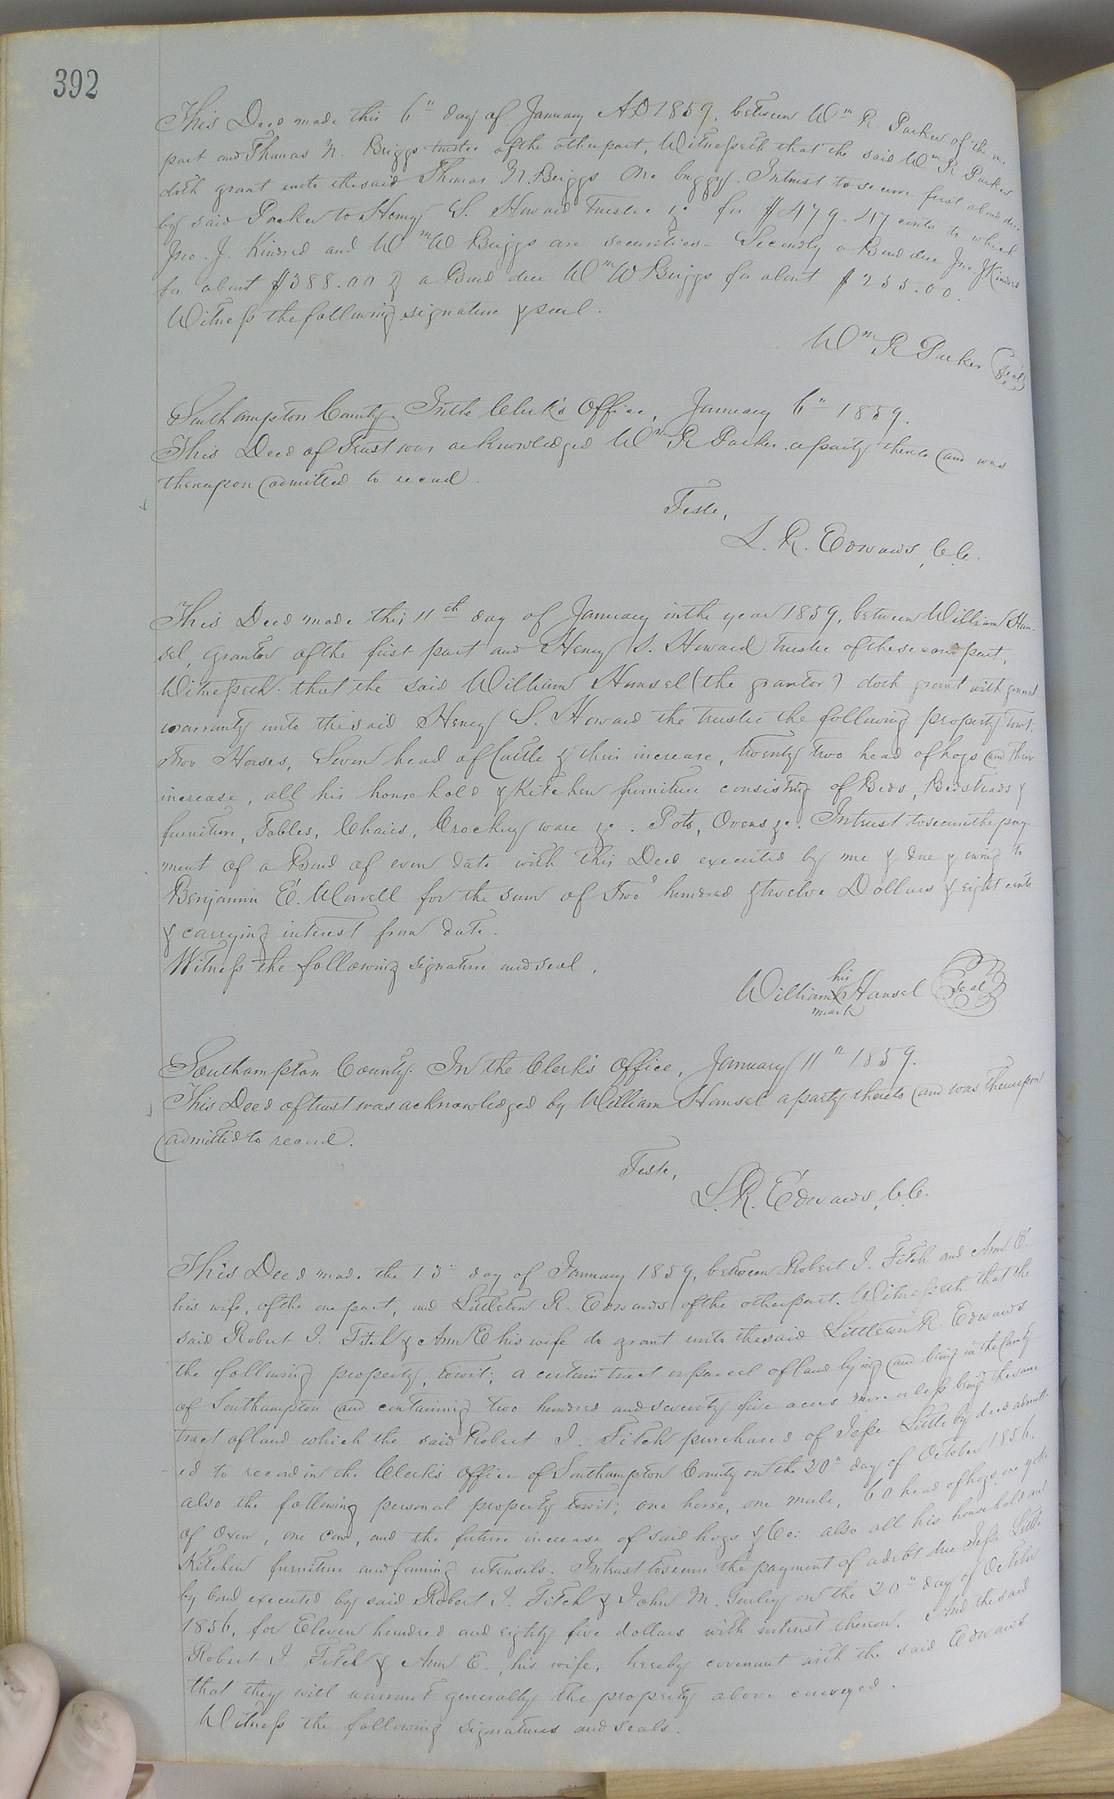 392
This Deed made this 6" day of January AD 1859, between Wm R. Parker of the one
part and Thomas N. Briggs trustee of the other part, Witnesseth that the said Wm R Parker
doth grant unto the said Thomas N. Briggs One buggy. In trust to secure first a bond due
by said Parker to Henry S. Howard trustee &c for $479.47 cents to which
Jno. J. Kindred and Wm W Briggs are securities - Secondly a Bond due Jno. J Kindred
for about $388.00 & a Bond due Wm W Briggs for about $255.00.
Witness the following signature & seal.
Wm R Parker (Seal)
Southampton County. In the Clerk's Office, January 6" 1859.
This Deed of Trust was acknowledged Wm R Parker a party thereto and was
thereupon admitted to record.
Teste,
L. R. Edwards, C.C.
This Deed made this 11th day of January in the year 1859, between William Han-
sel, grantor of the first part and Henry S. Howard trustee of the second part,
Witnesseth that the said William Hansel (the grantor) doth grant with general
warranty unto the said Henry S. Howard the trustee the following property towit:
Two Horses, Seven head of Cattle & their increase, twenty two head of hogs and their
increase, all his household & Kitchen furniture consisting of Beds, Bedsteads &
furniture, Tables, Chairs, Crockery ware &c. Pots, Ovens &c. In trust to secure the pay-
ment of a Bond of even date with this Deed executed by me & due & owing to
Benjamin E. Worrell for the sum of Two hundred & twelve Dollars & eight cents
& carrying interest from date.
Witness the following signature and seal,
his
William X Hansel (Seal)
mark
Southampton County. In the Clerk's Office, January 11" 1859.
This Deed of trust was acknowledged by William Hansel a party thereto and was thereupon
admitted to record.
Teste,
L. R. Edwards, C.C.
This Deed made the 15" day of January 1859, between Robert J. Fitch and Ann E.
his wife, of the one part, and Littleton R. Edwards of the other part. Witnesseth that the
said Robert J. Fitch & Ann E his wife do grant unto the said Littleton R. Edwards
the following property, towit; a certain tract or parcel of land lying and being in the County
of Southampton and containing two hundred and seventy five acres more or less being the same
tract of land which the said Robert J. Fitch purchased of Jesse Little by deed admitt-
ed to record in the Clerk's Office of Southampton County on the 20" day of October 1856.
also the following personal property towit; one horse, one mule, 60 head of hogs, one yoke
of Oxen, one cow, and the future increase of said hogs &c: also all his household and
Kitchen furniture and farming utensils. In trust to secure the payment of a debt due Jesse Little
by bond executed by said Robert J. Fitch & John M. Gurley on the 20" day of October
1856, for Eleven hundred and eighty five dollars with interest thereon. And the said
Robert J Fitch & Ann E. his wife, hereby covenant with the said Edwards
that they will warrant generally the property above conveyed.
Witness the following signatures and seals.